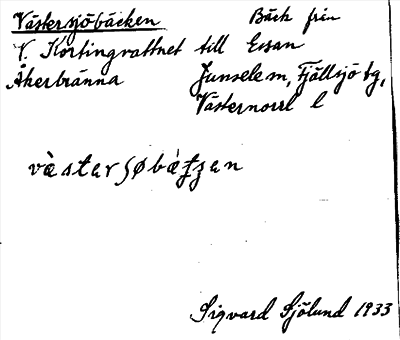 Västersjöbäcken Bäck från
V. Kortingvattnet till Ecsan
Åkerbränna Junsele sn, Fjällsjö tg,
Västernorrl l
vàstarʃøbátʒan
Sigvard Sjölund 1933